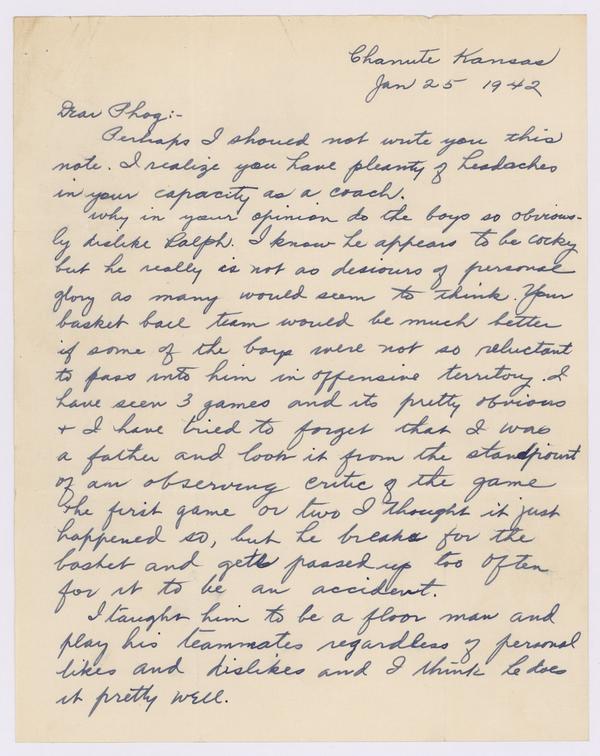 Chanute Kansas
Jan 25 1942
Dear Phog:-
Perhaps I should not write you this
note. I realize you have pleanty of headaches
in your capacity as a coach.
Why in your opinion do the boys so obvious-
ly dislike Ralph. I know he appears to be cocky
but he really is not as desiours of personal
glory as many would seem to think. Your
basket ball team would be much better
if some of the boys were not so reluctant
to pass into him in offensive territory. I
have seen 3 games and its pretty obvious
+ I have tried to forget that I was
a father and look it from the standpoint
of an observing critic of the game
the first game or two I thought it just
happened so, but he breaks for the
basket and gets passed up too often
for it to be an accident.
I taught him to be a floor man and
play his teammates regardless of personal
likes and dislikes and I think he does
it pretty well.